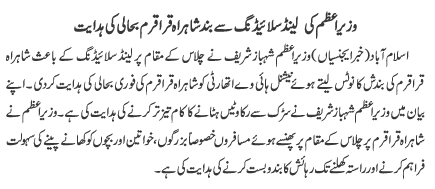 وزیراعظم کی لینڈ سلائیڈنگ سے بند شاہراہ قراقرم بحالی کی ہدایت
اسلام آباد (خبر ایجنسیاں) وزیراعظم شہباز شریف نے چلاس کے مقام پر لینڈ سلائیڈنگ کے باعث شاہراہ
قراقرم کی بندش کا نوٹس لیتے ہوئے نیشنل ہائی وے اتھارٹی کو شاہراہ قراقرم کی فوری بحالی کی ہدایت کر دی۔ اپنے
بیان میں وزیراعظم شہباز شریف نے سڑک سے رکاوٹیں ہٹانے کا کام تیز تر کرنے کی ہدایت کی ہے۔ وزیراعظم نے
شاہراہ قراقرم پر چلاس کے مقام پر پھنسے ہوئے مسافروں خصوصاً بزرگوں، خواتین اور بچوں کو کھانے پینے کی سہولت
فراہم کرنے اور راستہ کھلنے تک رہائش کا بندوبست کرنے کی ہدایت کی ہے۔